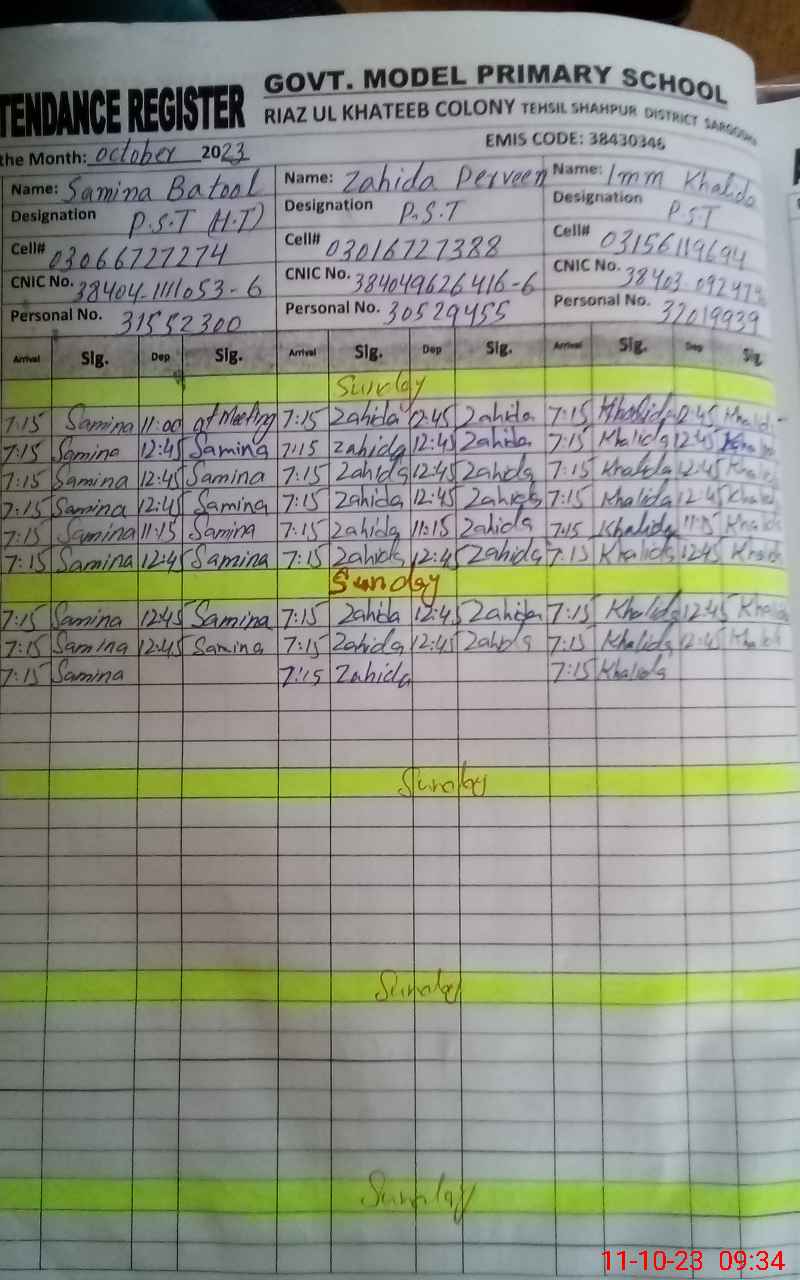 TENDANCE REGISTER
GOVT. MODEL PRIMARY SCHOOL
RIAZ UL KHATEEB COLONY TEHSIL SHAHPUR DISTRICT
EMIS CODE: 38430346
the Month: October 2023
Name: Samina Batool Name: Zahida Perveen Name: Imm Khalida
Designation P.S.T (H.T) Designation P.S.T Designation PST
Cell# 03066727274 Cell# 03016727388 Cell# 03156119694
CNIC No. 38404-1111053-6 CNIC No. 384049626416-6 CNIC No. 38403-
Personal No. 31552300 Personal No. 30529455 Personal No. 32019939
Arrival Sig. Dep Sig. Arrival Sig. Dep Sig. Arrival Sig. Dep Sig
Sunday
7:15 Samina 11:00 at Meeting 7:15 Zahida 12:45 Zahida 7:15 Khalida 12:45 Khalid
7:15 Samina 12:45 Samina 7:15 Zahida 12:45 Zahida 7:15 Khalida 12:45
7:15 Samina 12:45 Samina 7:15 Zahida 12:45 Zahida 7:15 Khalida 12:45 Khalid
7:15 Samina 12:45 Samina 7:15 Zahida 12:45 Zahida 7:15 Khalida 12:45 Khalid
7:15 Samina 11:15 Samina 7:15 Zahida 11:15 Zahida 7:15 Khalida 11:15 Khalid
7:15 Samina 12:45 Samina 7:15 Zahida 12:45 Zahida 7:15 Khalida 12:45 Khalid
Sunday
7:15 Samina 12:45 Samina 7:15 Zahida 12:45 Zahida 7:15 Khalida 12:45 Khalid
7:15 Samina 12:45 Samina 7:15 Zahida 12:45 Zahida 7:15 Khalida 12:45 Khalid
7:15 Samina 7:15 Zahida 7:15 Khalida
Sunday
Sunday
Sunday
11-10-23 09:34